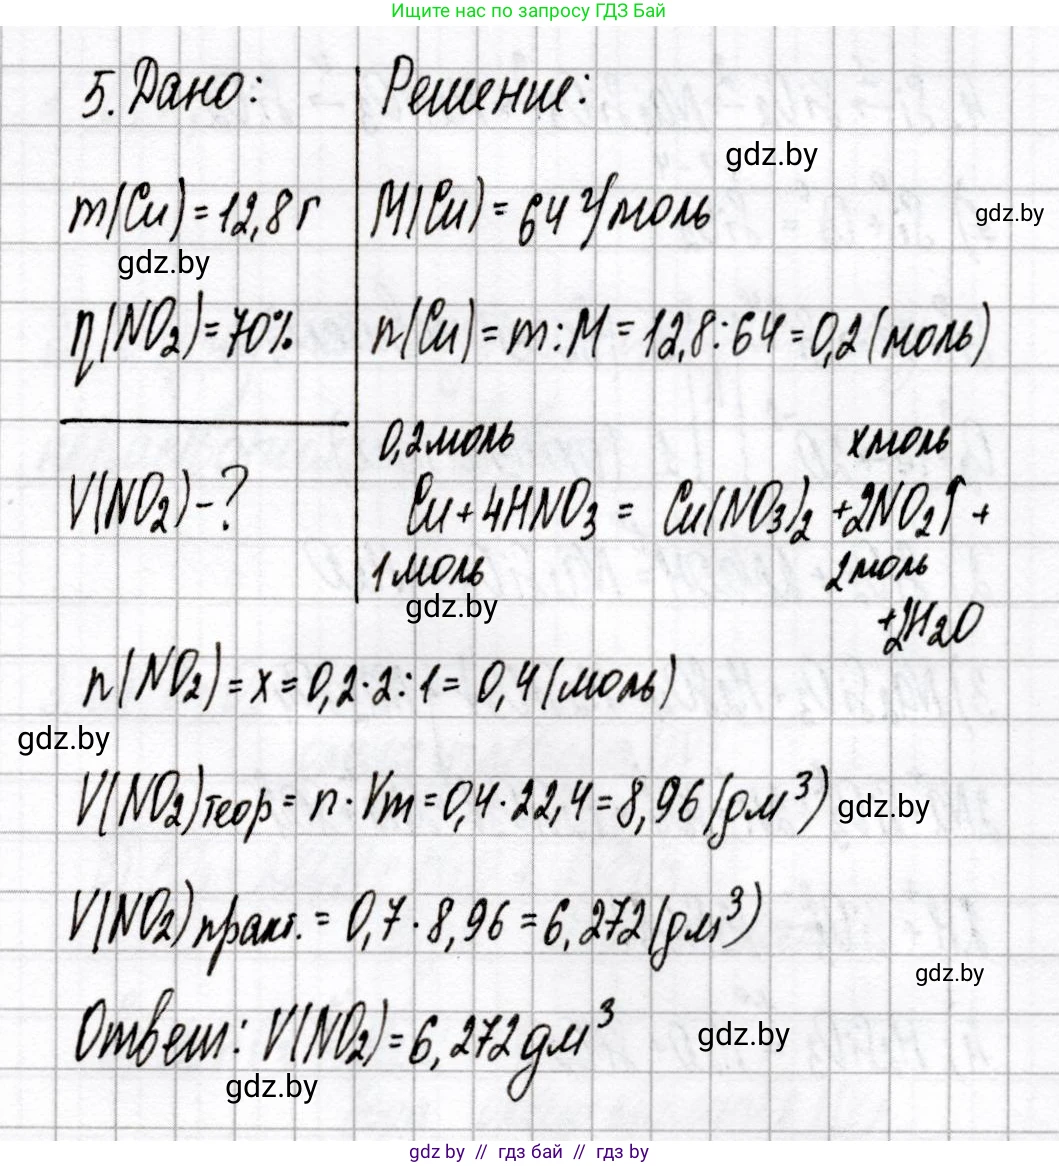 Ищите нас по запросу ГДЗ Бай
5. Дано:
Решение:
gdz.by
m(Cu) = 12,8 г
M(Cu) = 64 г/моль
gdz.by
gdz.by
η(NO₂) = 70%
n(Cu) = m : M = 12,8 : 64 = 0,2 (моль)
0,2 моль x моль
V(NO₂) - ?
Cu + 4HNO₃ = Cu(NO₃)₂ + 2NO₂↑ +
1 моль 2 моль
gdz.by
+2H₂O
n(NO₂) = x = 0,2 · 2 : 1 = 0,4 (моль)
gdz.by
V(NO₂)теор = n · Vm = 0,4 · 22,4 = 8,96 (дм³)
gdz.by
V(NO₂)практ. = 0,7 · 8,96 = 6,272 (дм³)
gdz.by
Ответ: V(NO₂) = 6,272 дм³
gdz.by
gdz.by
gdz.by // гдз бай // гдз by